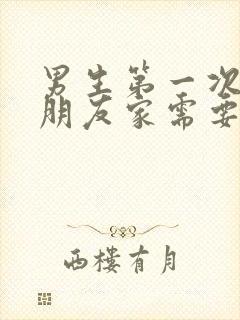 男生第一次
朋友家需要
西楼有月